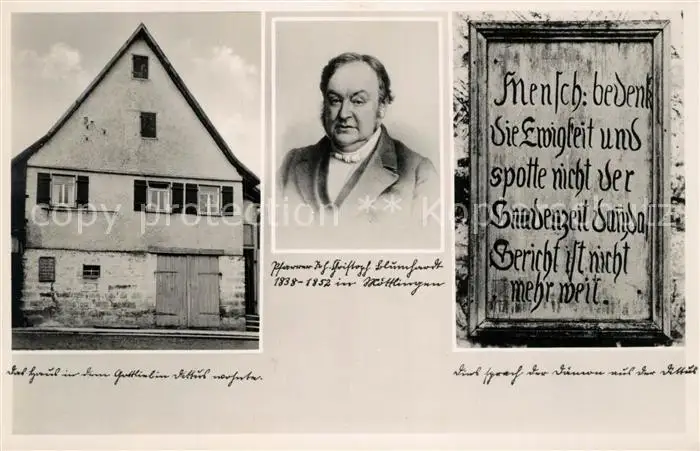 Das Haus in dem Gottliebin Dittus wohnte.
Pfarrer Joh. Christoph Blumhardt
1838-1852 in Möttlingen
Mensch: bedenk
die Ewigkeit und
spotte nicht der
Gnadenzeit dan̄ da
Gericht ist nicht
mehr weit.
Dies sprach der Dämon aus der Dittus
copyright picturepostcards.berlin